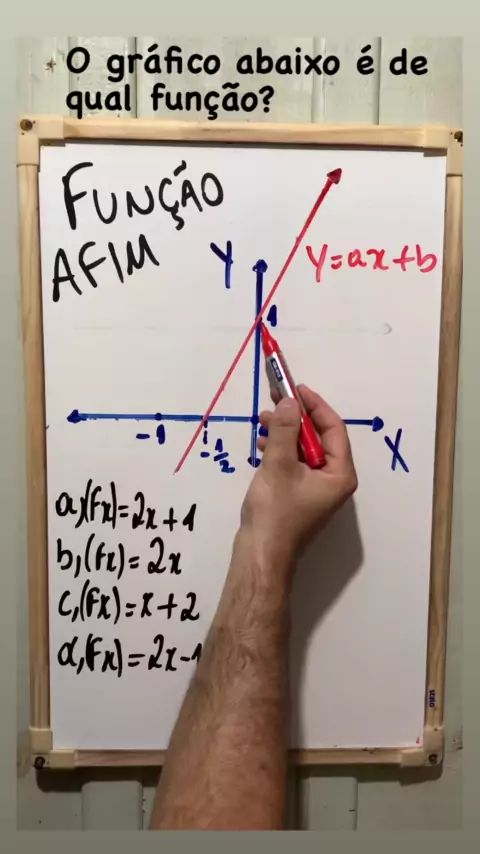 O gráfico abaixo é de
qual função?
FUNÇÃO
AFIM
Y
Y=ax+b
1
-1
-1/2
X
a,(Fx)=2x+1
b,(Fx)=2x
c,(Fx)=x+2
d,(Fx)=2x-1